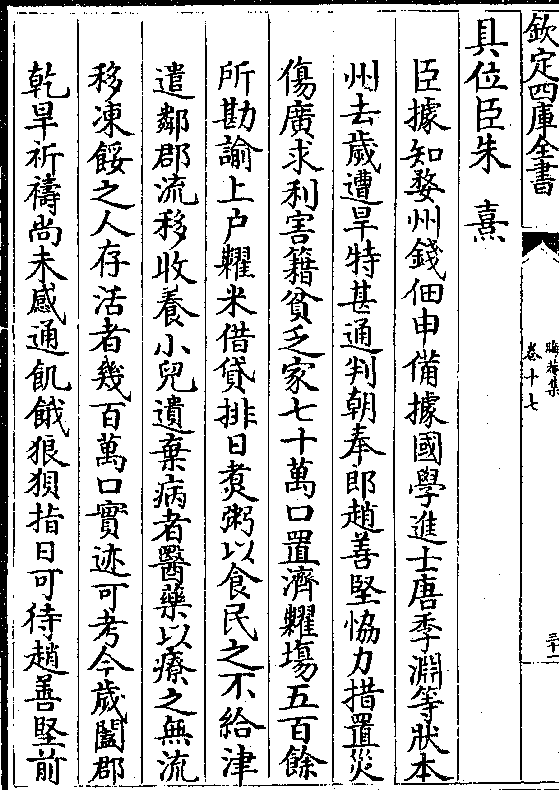 欽定四庫全書
晦菴集
卷十七
三十一
具位臣朱熹
臣據知婺州錢佃申備據國學進士唐季淵等狀本
州去歲遭旱特甚通判朝奉郎趙善堅恊力措置災
傷廣求利害籍貧乏家七十萬口置濟糶塲五百餘
所勘諭上户糶米借貸排日煑粥以食民之不給津
遣鄰郡流移收養小兒遺棄病者醫藥以療之無流
移凍餒之人存活者幾百萬口實迹可考今歲闔郡
乾旱祈禱尚未感通飢餓狼狽指日可待趙善堅前